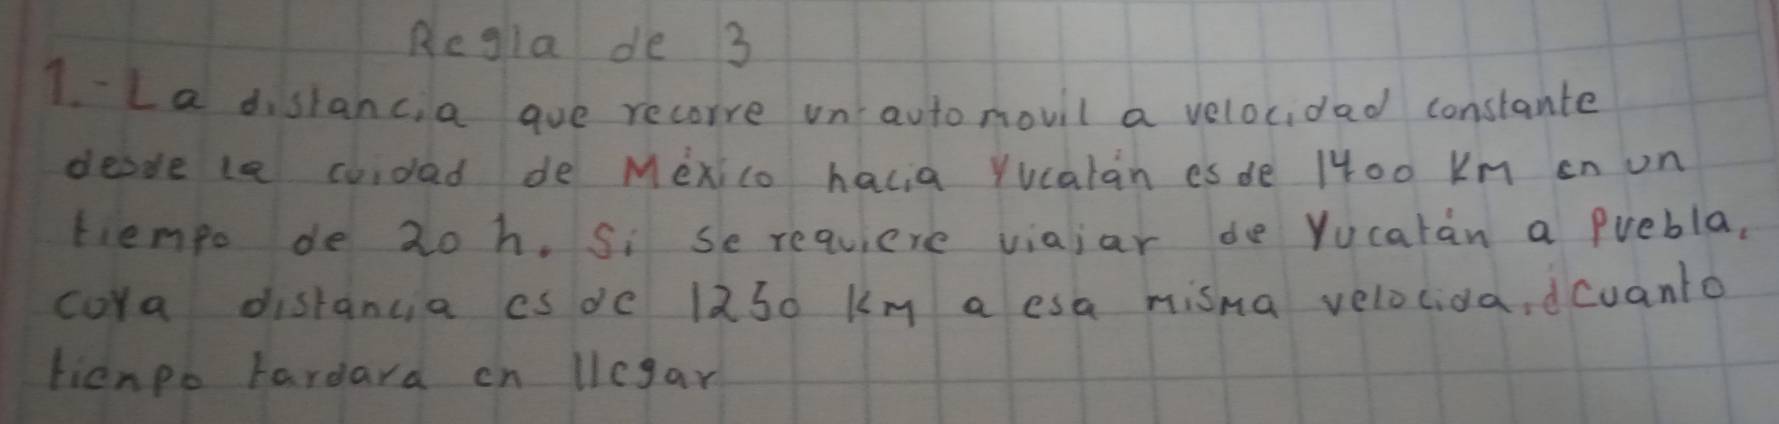 Regla de 3
1.- La distancia que recorre un automovil a velocidad constante
desde la cuidad de México hacia Yucatán es de 1400 Km en un
tiempo de 20 h. Si se requiere viajar de Yucatán a Puebla,
cuya distancia es de 1250 Km a esa misma velocida, ¿cuanto
tienpo tardara en llegar